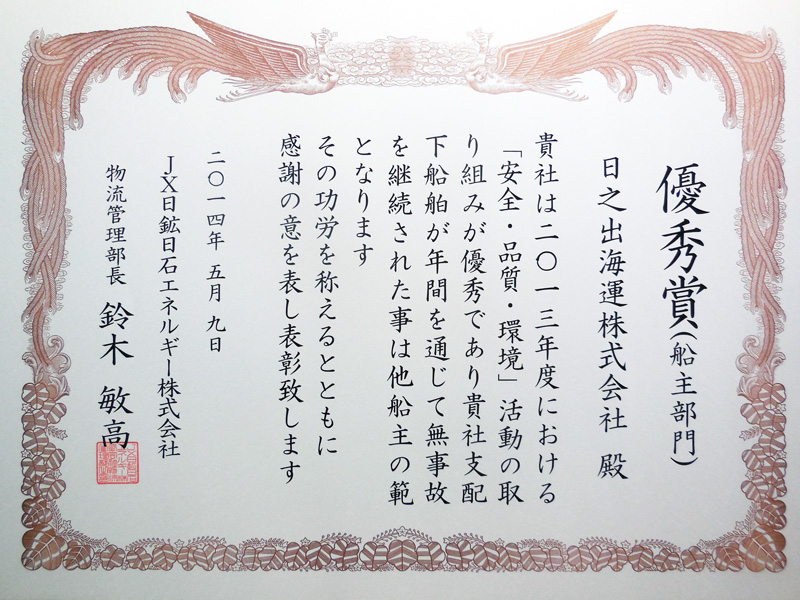 優秀賞(船主部門)
日之出海運株式会社 殿
貴社は二〇一三年度における
「安全・品質・環境」活動の取
り組みが優秀であり貴社支配
下船舶が年間を通じて無事故
を継続された事は他船主の範
となります
その功労を称えるとともに
感謝の意を表し表彰致します
二〇一四年 五月 九日
JX日鉱日石エネルギー株式会社
物流管理部長 鈴木 敏高